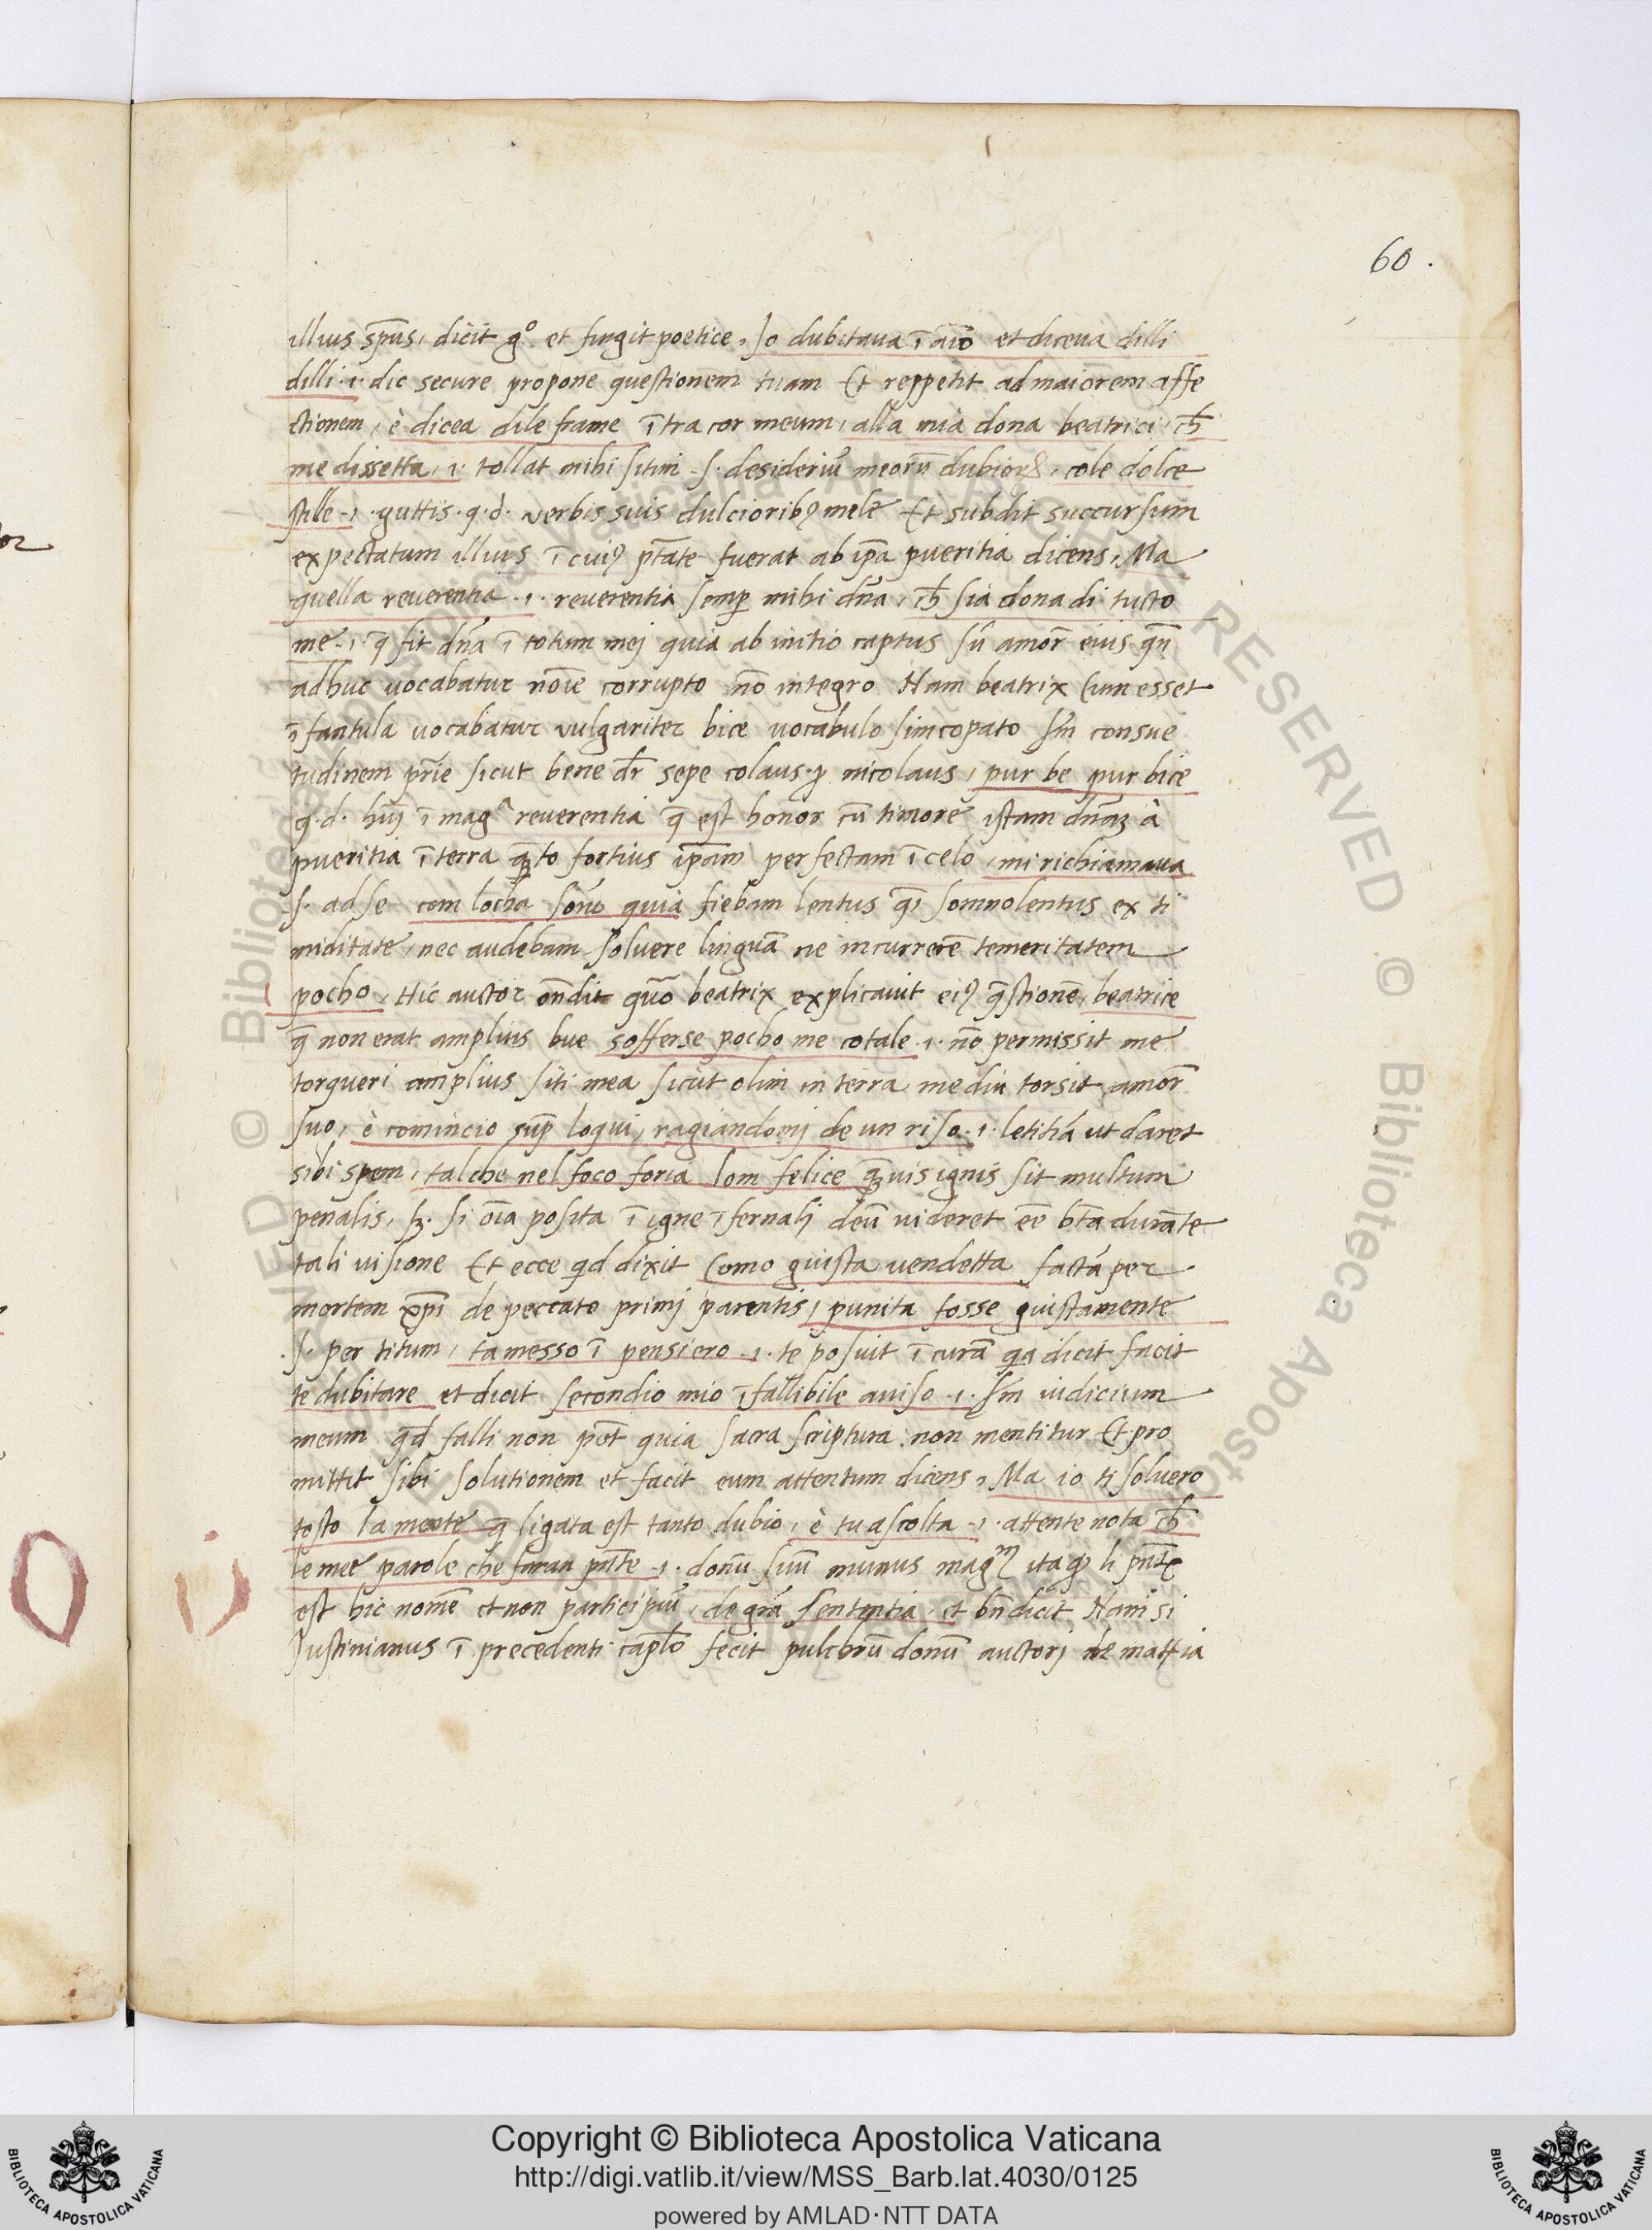 60.
illius sp̄us, dicit gº. et fingit poetice. Io dubitaua ī aīo et diceua dilli
dilli .i. dic secure propone questionem tuam Et reppetit ad maiorem affe
ctionem, è dicea dile frame ītra cor meum, alla mia dona beatrici, ch̄
me dissetta, .i. tollat mihi sitim .s. desideriū meorū dubioꝝ, cole dolce
stille .i. guttis .q.d. verbis suis dulcioribꝰ mele Et subdit succursum
expectatum illius ī cuiꝰ ptāte fuerat ab ip̄a pueritia dicens, Ma
quella reuerentia .i. reuerentia semp̄ mihi dn̄a, ch̄ sia dona di tucto
me .i. q̄ fit dn̄a ī totum mej quia ab initio captus sū amor̄ eius qn̄
adhuc uocabatur noīe corrupto nō integro Nam beatrix Cum esset
īfantula uocabatur vulgariter bice uocabulo simcopato sm̄ consue
tudinem pr̄ie sicut bene dr̄ sepe colaus ꝓ nicolaus, pur be pur bice
q.d. hūi ī magᵃ reuerentia q̄ est honor cū timore istam dn̄aꝫ à
pueritia ī terra quāto fortius ip̄am perfectam ī celo, mi richiamaua
.s. ad se com locha sōno quia fiebam lentus q̄i somnolentus ex ti
miditate, nec audebam soluere linguā ne incurrerē temeritatem
pocho, Hic auctor on̄dit quō beatrix explicauit eiꝰ q̄stionē, beatrice
q̄ non erat amplius bue sofferse pocho me cotale .i. nō permissit me
torqueri amplius siti mea sicut olim in terra me diu torsit amor̄
suo, è comincio sup̄ loqui, ragiandomj de un riso .i. letitiā ut daret
sibi spem, talche nel foco foria lom felice quāuis ignis sit multum
penalis, sꝫ. si oīa posita ī igne īfernalj deū uideret eē bt̄a durāte
tali uisione Et ecce qd dixit Como guista uendetta facta per
mortem xp̄i de peccato primj parentis, punita fosse guistamente
.s. per titum, ta messo ī pensiero .i. te posuit ī curā qia dicit facit
te dubitare et dicit secondio mio īfallibile auiso .i. sm̄ iudicium
meum qd̄ falli non pōt quia sacra scriptura non mentitur Et pro
mittit sibi solutionem et facit eum attentum dicens, Ma io ti soluero
tosto la mente q̄ ligata est tanto dubio, è tu ascolta .i. attente nota ch̄
le mee parole che faran pn̄te .i. donū siuū munus magᵐ ita qꝫ li pn̄te
est hic nomē et non participiū, de grā sententia, et bn̄ dicit Nam si
Iustinianus ī precedenti capl̄o fecit pulchrū donū auctorj de mattia
Copyright © Biblioteca Apostolica Vaticana
http://digi.vatlib.it/view/MSS_Barb.lat.4030/0125
powered by AMLAD·NTT DATA